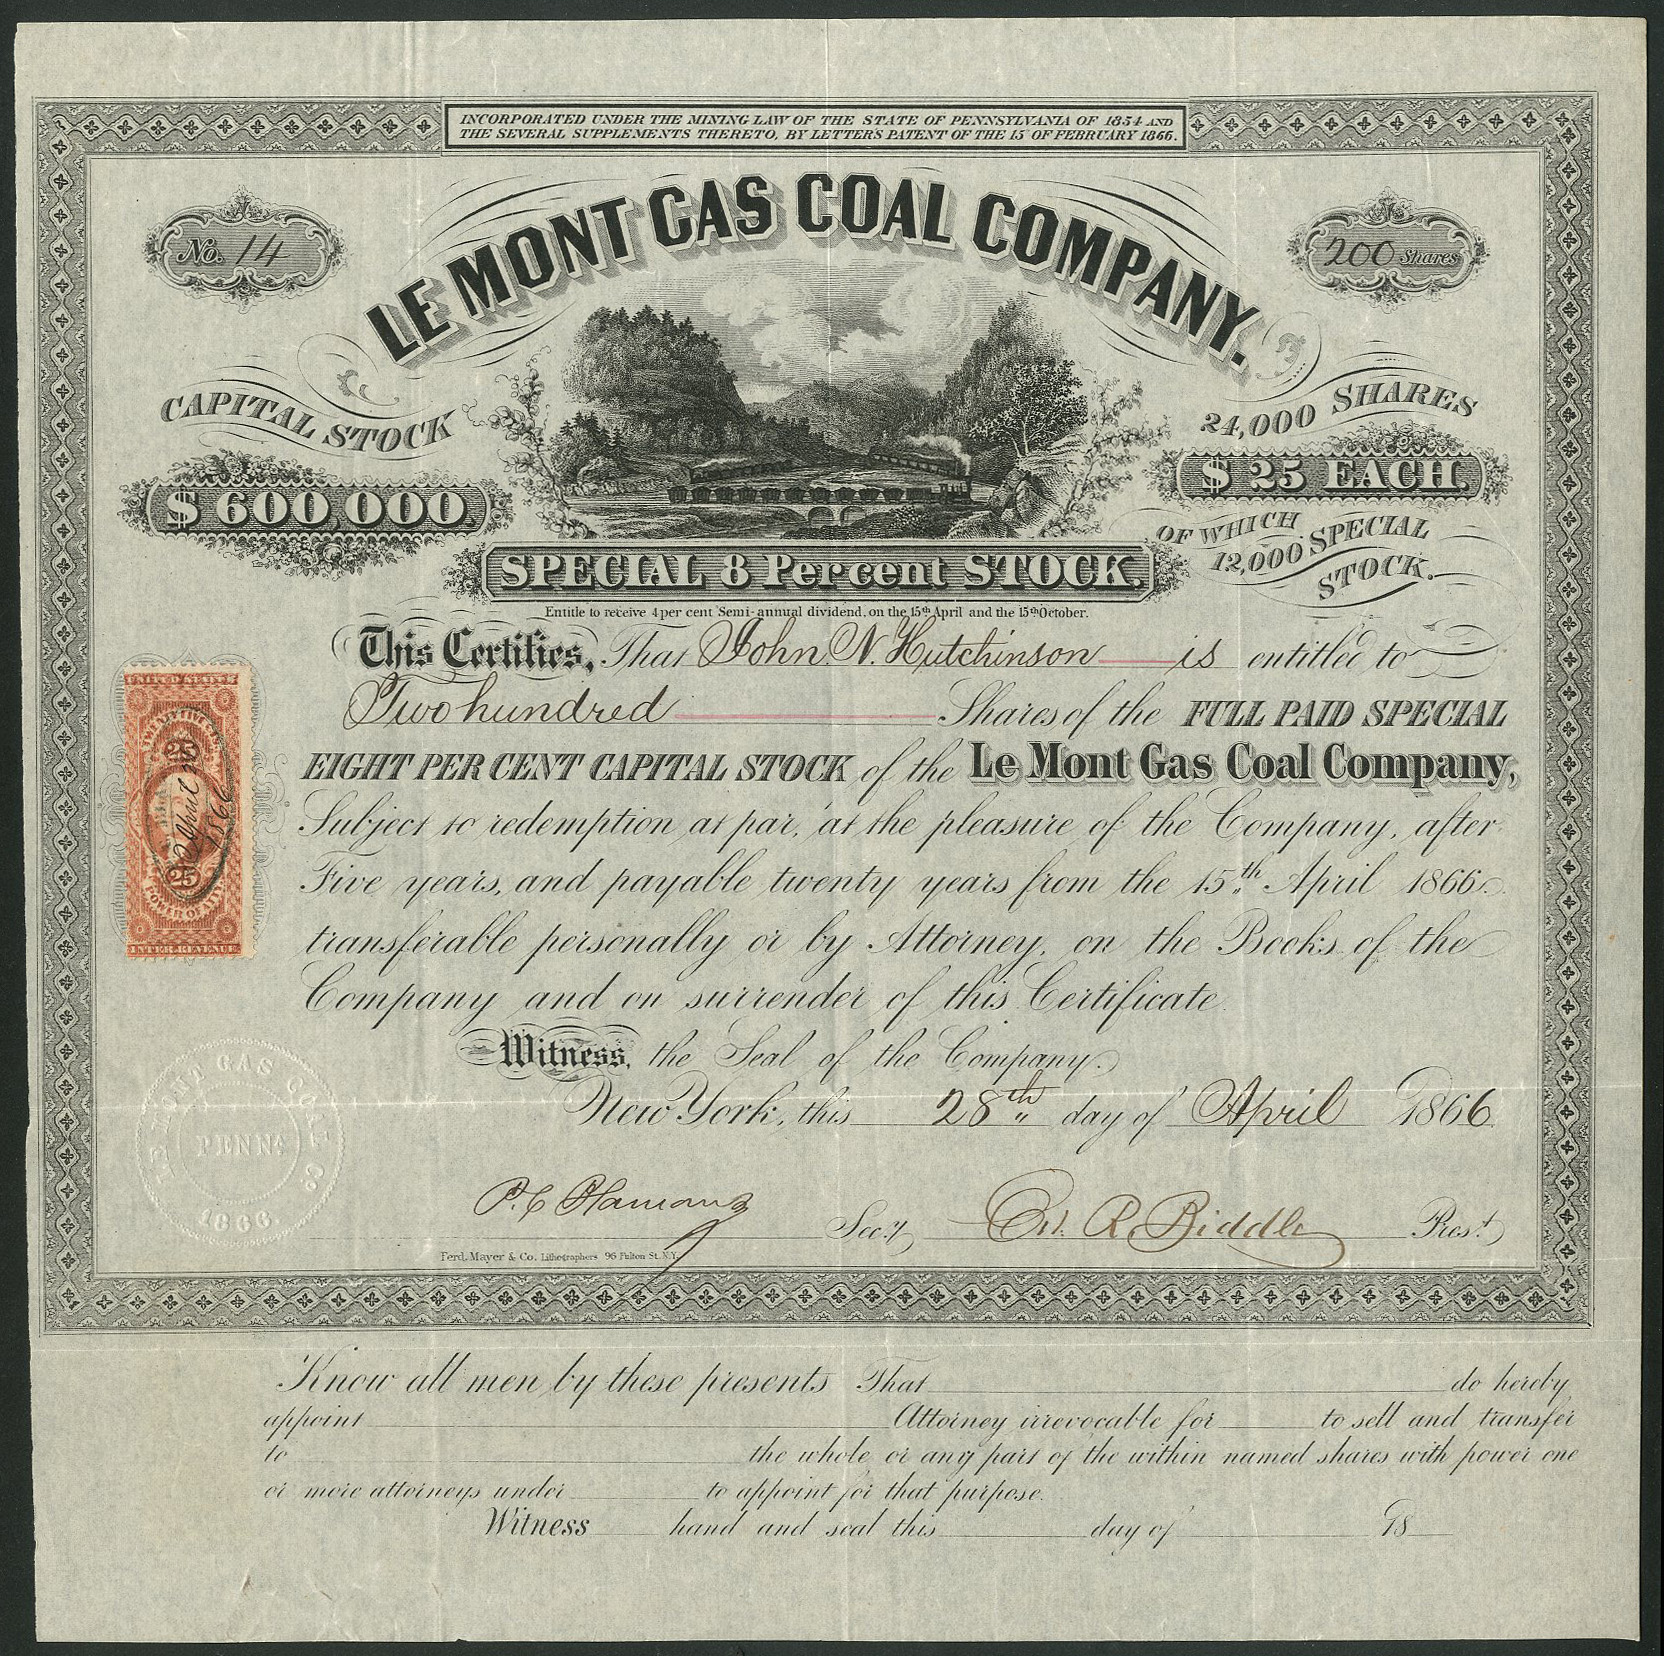 INCORPORATED UNDER THE MINING LAW OF THE STATE OF PENNSYLVANIA OF 1854 AND
THE SEVERAL SUPPLEMENTS THERETO, BY LETTERS PATENT OF THE 15 OF FEBRUARY 1866.
No. 14
LE MONT GAS COAL COMPANY.
200 Shares
CAPITAL STOCK
$600,000
24,000 SHARES
$25 EACH.
OF WHICH
12,000 SPECIAL
STOCK.
SPECIAL 8 Per cent STOCK.
Entitle to receive 4 per cent Semi-annual dividend, on the 15th April and the 15th October.
This Certifies, That John N. Hutchinson is entitled to
Two hundred Shares of the FULL PAID SPECIAL
EIGHT PER CENT CAPITAL STOCK of the Le Mont Gas Coal Company,
Subject to redemption at par, at the pleasure of the Company, after
Five years, and payable twenty years from the 15th April 1866.
transferable personally or by Attorney, on the Books of the
Company and on surrender of this Certificate.
Witness, the Seal of the Company.
New York, this 28th day of April 1866
UNITED STATES
25
April
1866
25
POWER OF ATTY
INTER. REVENUE
LE MONT GAS COAL CO
PENNA.
1866.
Secy. W. R. Biddle Prest.
Ferd. Mayer & Co. Lithographers 96 Fulton St. N.Y.
Know all men by these presents That do hereby
appoint Attorney irrevocable for to sell and transfer
to the whole or any part of the within named shares with power one
or more attorneys under to appoint for that purpose.
Witness hand and seal this day of 18